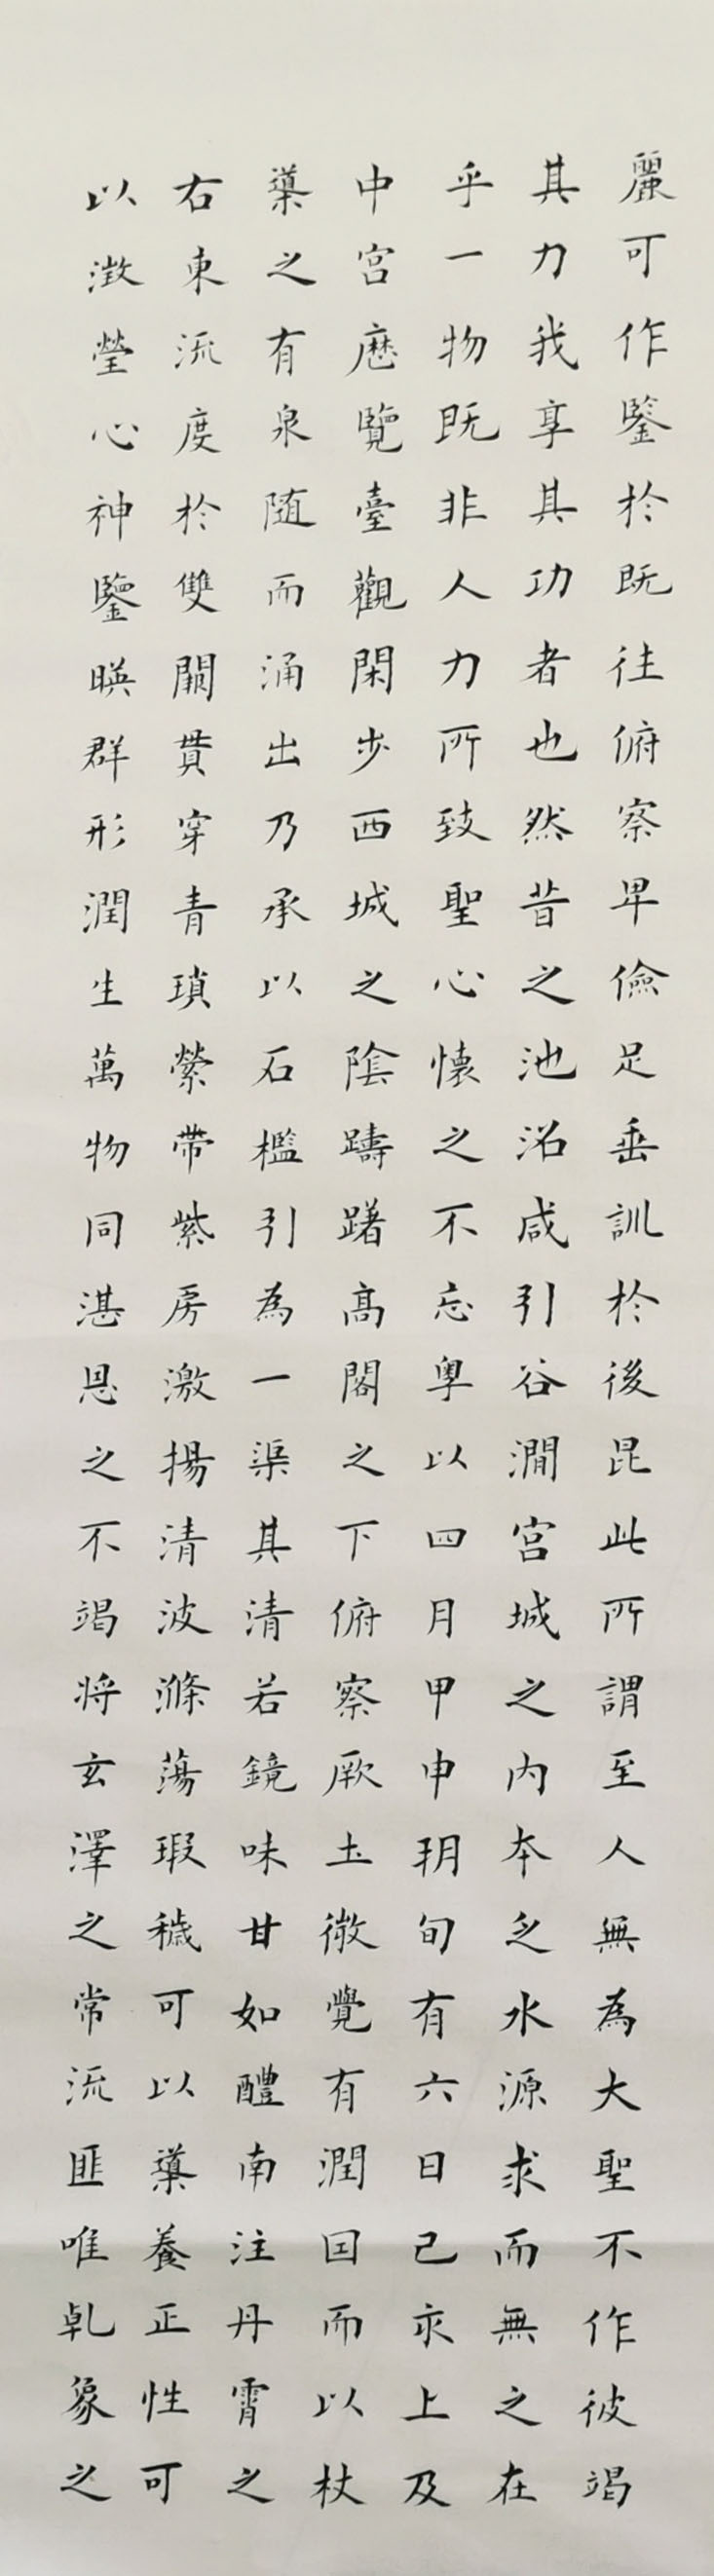 麗可作鑒於既往俯察卑儉足垂訓於後昆此所謂至人無為大聖不作彼竭
其力我享其功者也然昔之池沼咸引谷澗宮城之内本乏水源求而無之在
乎一物既非人力所致聖心懷之不忘粤以四月甲申朔旬有六日己亥上及
中宮歴覽臺觀閑步西城之陰躊躇高閣之下俯察厥土微覺有潤因而以杖
導之有泉随而涌出乃承以石檻引為一渠其清若鏡味甘如醴南注丹霄之
右東流度於雙闕貫穿青瑣縈帶紫房激揚清波滌蕩瑕穢可以導養正性可
以澂瑩心神鑒暎群形潤生萬物同湛恩之不竭将玄澤之常流匪唯乹象之